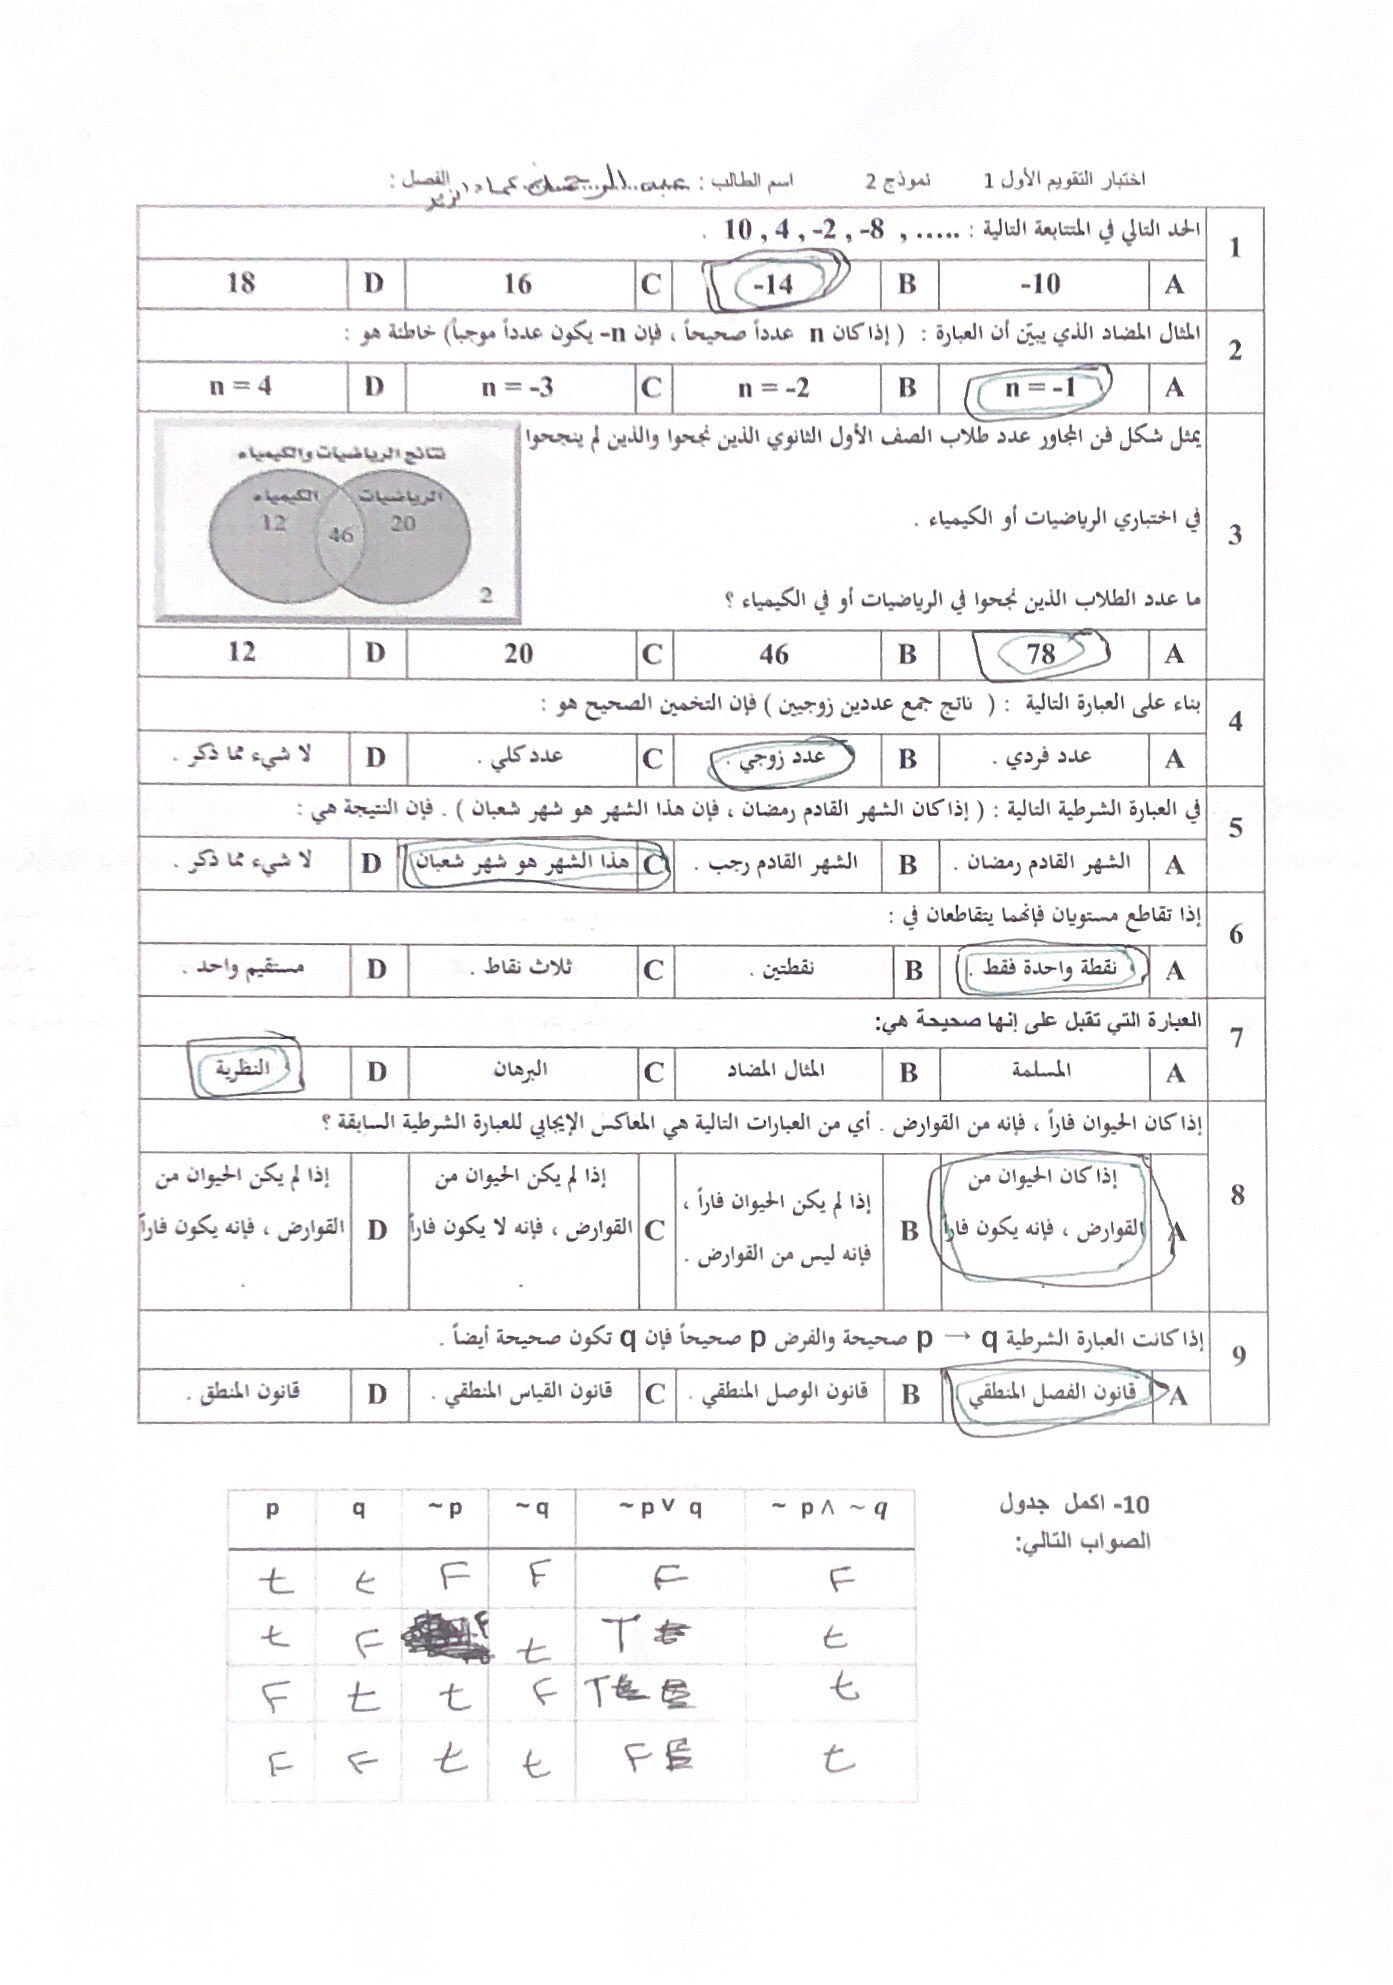 اختبار التقويم الأول 1 نموذج 2 اسم الطالب : عبد الرحمن عماد الفصل :
1 الحد التالي في المتتابعة التالية : 10 , 4 , -2 , -8 , ..... .
A -10 B -14 C 16 D 18
2 المثال المضاد الذي يبيّن أن العبارة : ( إذا كان n عدداً صحيحاً ، فإن n- يكون عدداً موجباً) خاطئة هو :
A n = -1 B n = -2 C n = -3 D n = 4
3 يمثل شكل فن المجاور عدد طلاب الصف الأول الثانوي الذين نجحوا والذين لم ينجحوا
في اختباري الرياضيات أو الكيمياء .
ما عدد الطلاب الذين نجحوا في الرياضيات أو في الكيمياء ؟
نتائج الرياضيات والكيمياء
الرياضيات الكيمياء
20 46 12
2
A 78 B 46 C 20 D 12
4 بناء على العبارة التالية : ( ناتج جمع عددين زوجيين ) فإن التخمين الصحيح هو :
A عدد فردي . B عدد زوجي . C عدد كلي . D لا شيء مما ذكر .
5 في العبارة الشرطية التالية : ( إذا كان الشهر القادم رمضان ، فإن هذا الشهر هو شهر شعبان ) . فإن النتيجة هي :
A الشهر القادم رمضان . B الشهر القادم رجب . C هذا الشهر هو شهر شعبان D لا شيء مما ذكر .
6 إذا تقاطع مستويان فإنهما يتقاطعان في :
A نقطة واحدة فقط . B نقطتين . C ثلاث نقاط . D مستقيم واحد .
7 العبارة التي تقبل على إنها صحيحة هي:
A المسلمة B المثال المضاد C البرهان D النظرية
8 إذا كان الحيوان فاراً ، فإنه من القوارض . أي من العبارات التالية هي المعاكس الإيجابي للعبارة الشرطية السابقة ؟
A إذا كان الحيوان من
القوارض ، فإنه يكون فاراً
B إذا لم يكن الحيوان فاراً ،
فإنه ليس من القوارض .
C إذا لم يكن الحيوان من
القوارض ، فإنه لا يكون فاراً
.
D إذا لم يكن الحيوان من
القوارض ، فإنه يكون فاراً
.
9 إذا كانت العبارة الشرطية p → q صحيحة والفرض p صحيحاً فإن q تكون صحيحة أيضاً .
A قانون الفصل المنطقي B قانون الوصل المنطقي . C قانون القياس المنطقي . D قانون المنطق .
10- اكمل جدول
الصواب التالي:
p q ~p ~q ~p ∨ q ~ p ∧ ~ q
t t F F F F
t F F t T t
F t t F T t
F F t t F t